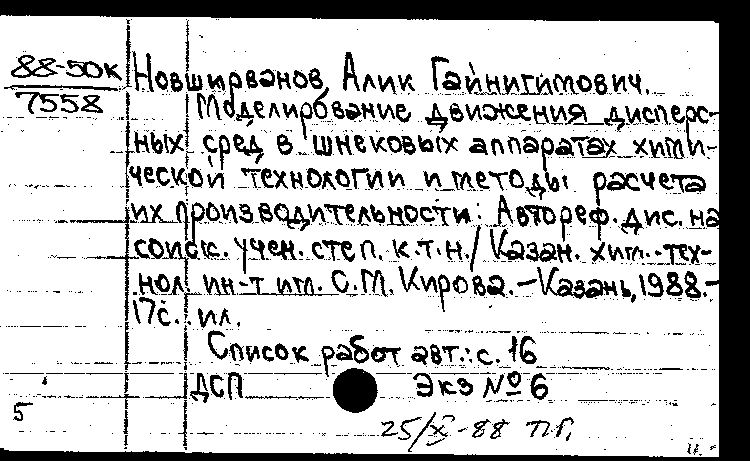 88-50К
7558
Новширванов, Алик Гайнигимович.
Моделирование движения дисперс-
ных сред в шнековых аппаратах хими-
ческой технологии и методы расчета
их производительности: Автореф. дис. на
соиск. учен. степ. к.т.н./ Казан. хим.-тех-
нол. ин-т им. С.М. Кирова.-Казань, 1988.-
17с. ил.
Список работ авт.: с. 16
ДСП Экз № 6
5
25/X-88 П.Г.